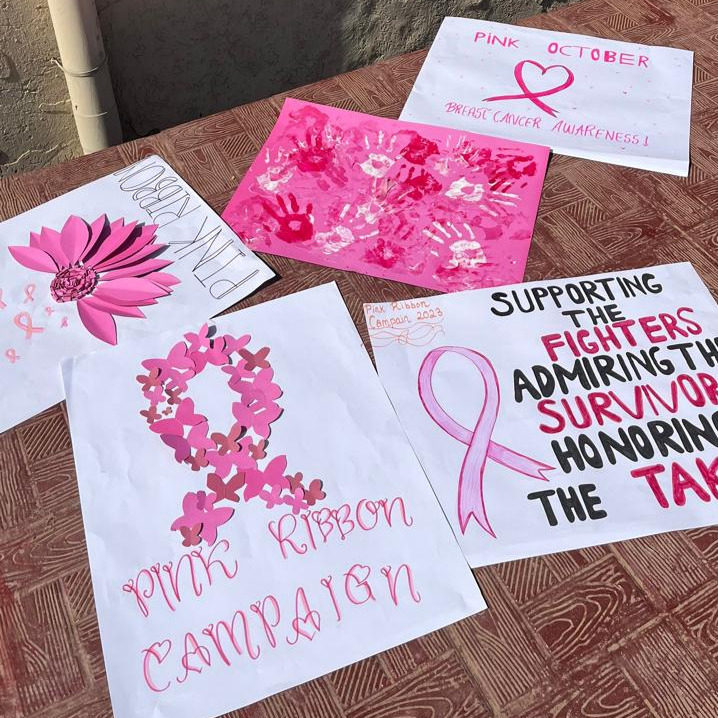 PINK OCTOBER
BREAST CANCER AWARENESS!
PINK RIBBON
Pink Ribbon
Campain 2023
SUPPORTING
THE
FIGHTERS
ADMIRING TH
SURVIVOR
HONORING
THE TAK
PINK RIBBON
CAMPAIGN